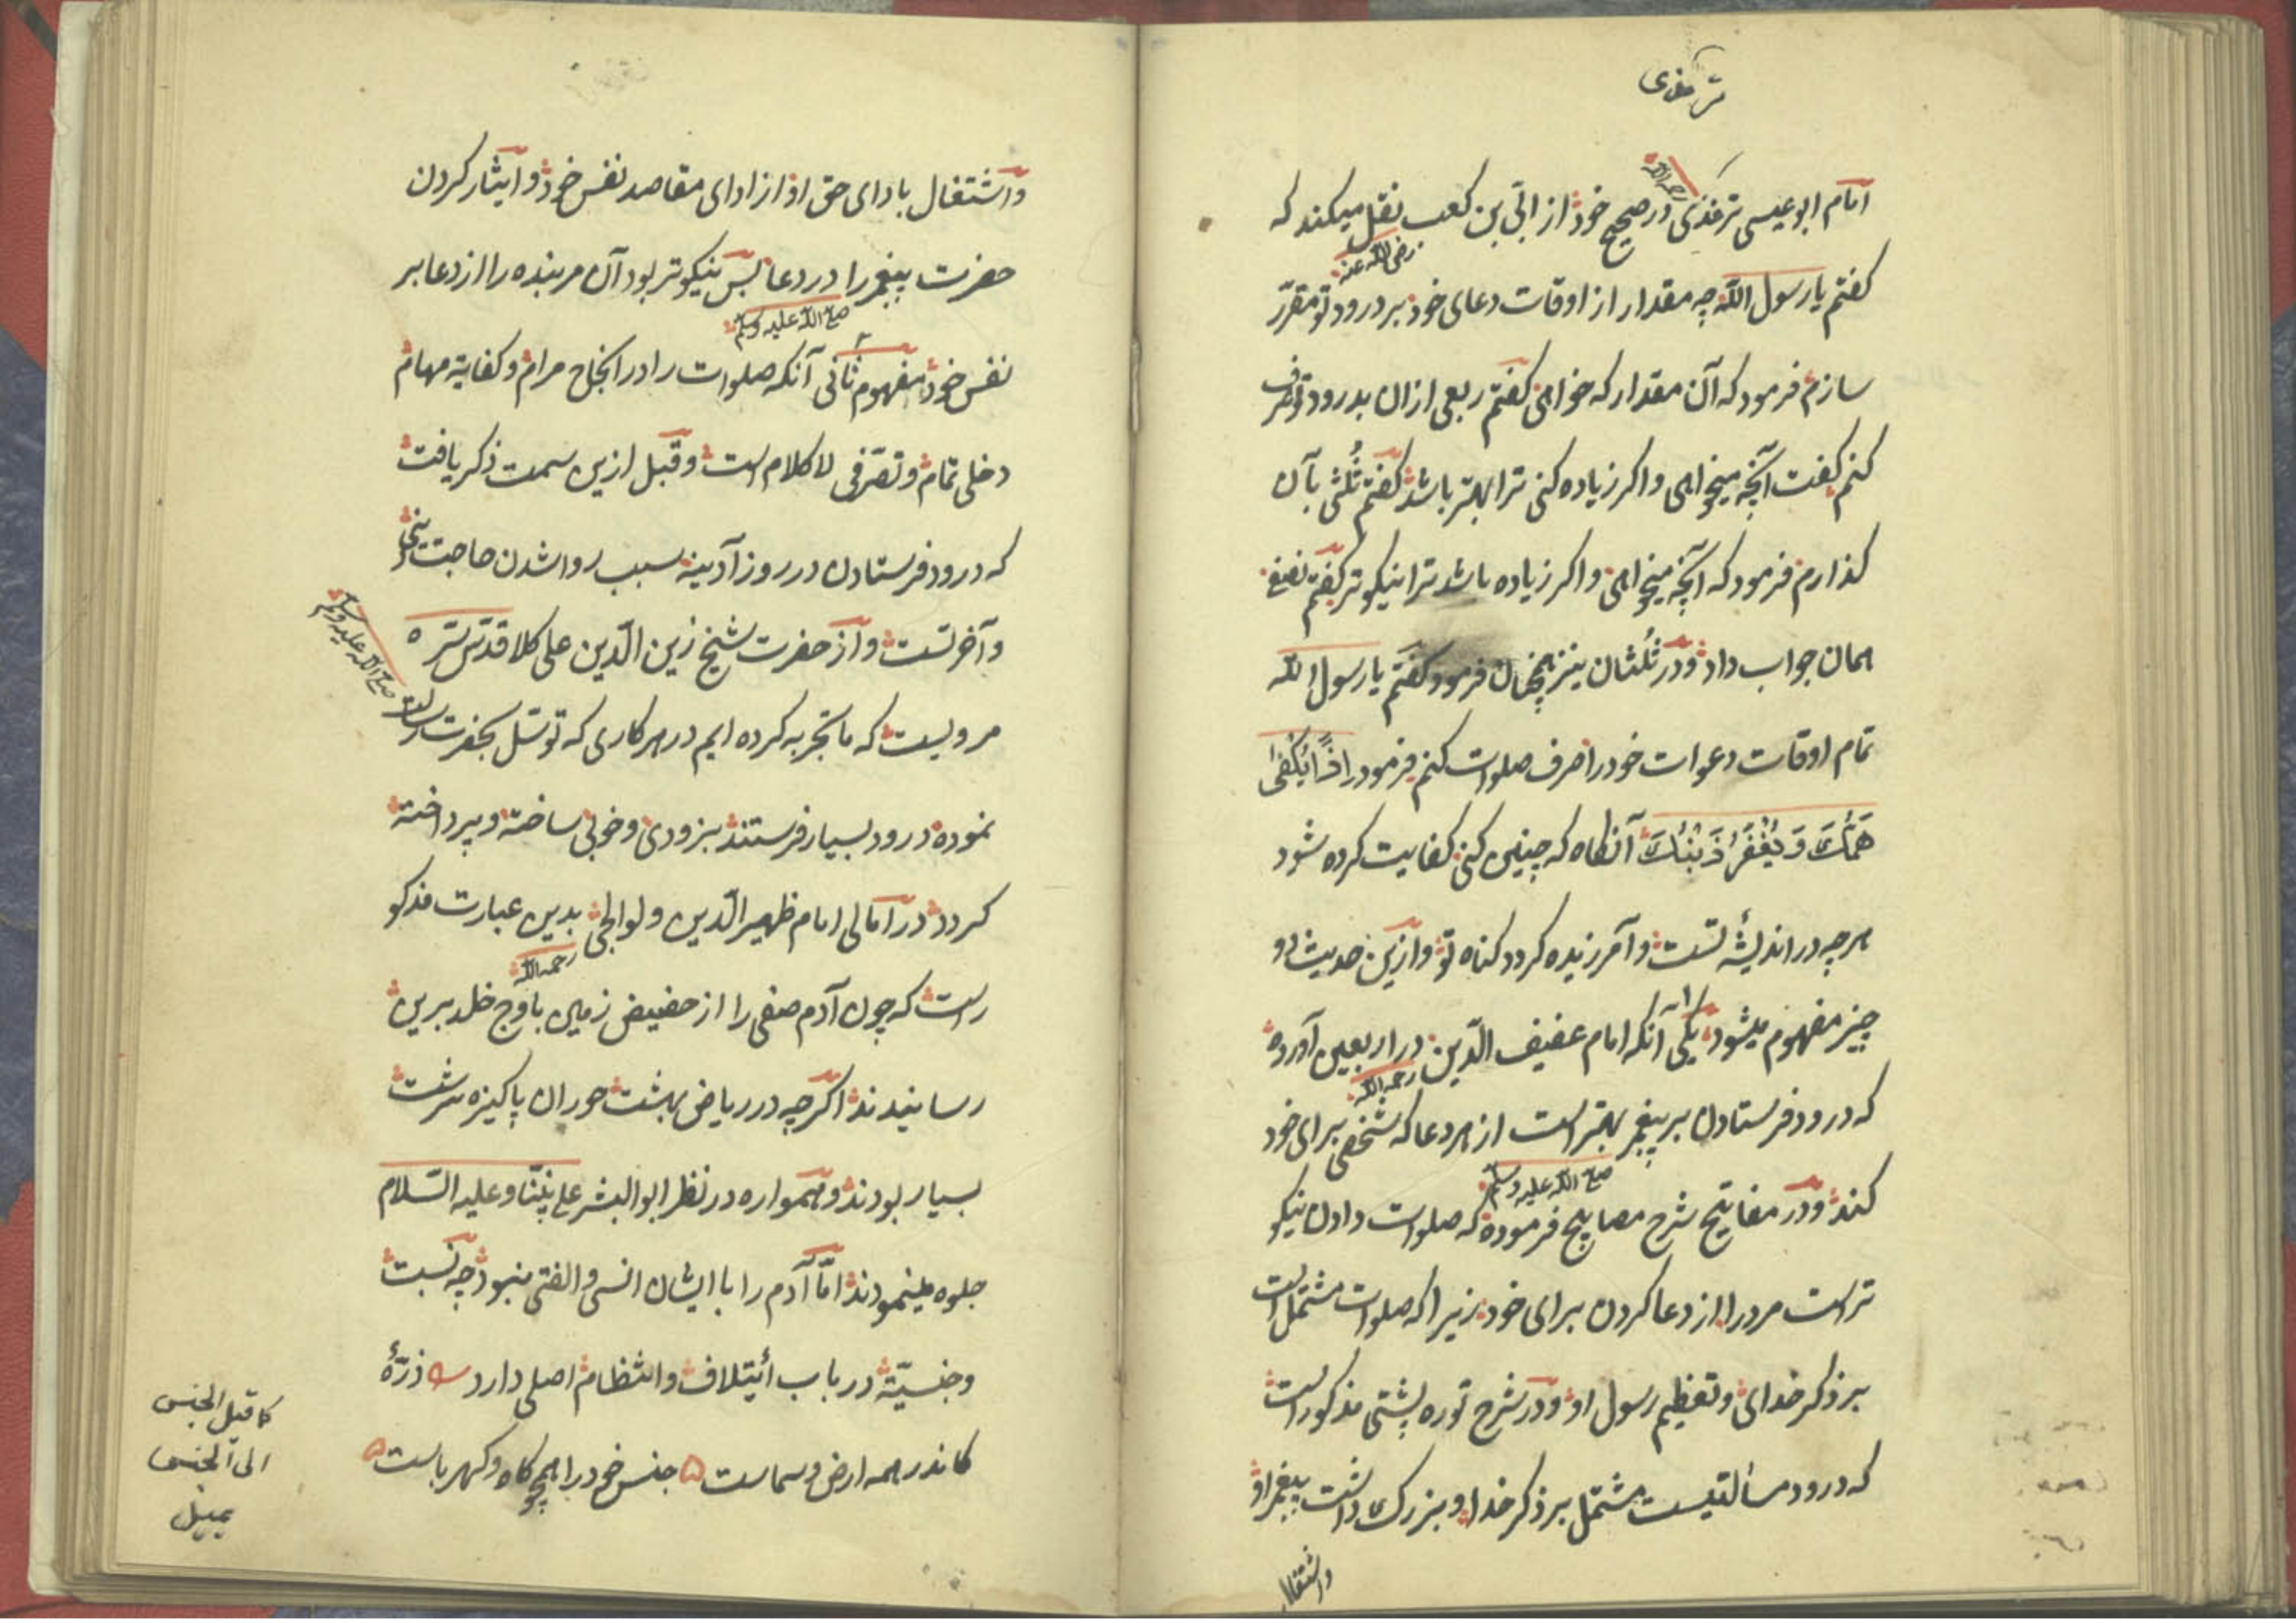 ترمذی
امام ابوعیسی ترمذی رحمه الله در صحیح خود از ابی بن کعب نقل میکند که
رضی الله عنه
کفتم یا رسول الله چه مقدار از اوقات دعای خود بر درود تو مقرر
سازم فرمود که آن مقدار که خواهی کفتم ربعی ازان بدرود تو صرف
کنم کفت آنچه میخواهی و اکر زیاده کنی ترا بهتر باشد کفتم ثلثی بآن
کذارم فرمود که آنچه میخواهی و اکر زیاده باشد ترا نیکوتر کفتم نصف
همان جواب داد و در ثلثان نیز همچنان فرمود کفتم یا رسول الله
تمام اوقات دعوات خود را صرف صلوات کنم فرمود اذًا یُکْفیٰ
هَمُّكَ وَ یُغْفَرُ ذَنْبُكَ آنکاه که چنین کنی کفایت کرده شود
هرچه در اندیشۀ تست و آمرزیده کردد کناه تو و ازین حدیث دو
چیز مفهوم میشود یکی آنکه امام عفیف الدّین در اربعین آورده
رحمه الله
که درود فرستادن بر پیغمبر بهتر است از هر دعا که شخصی برای خود
صلی الله علیه وسلم
کند و در مفاتیح شرح مصابیح فرموده که صلوات دادن نیکو
تر است مرد را از دعا کردن برای خود زیرا که صلوات مشتمل است
بر ذکر خدای و تعظیم رسول او و در شرح توره پشتی مذکور است
که درود مسألتیست مشتمل بر ذکر خدا و بزرک داشت پیغمبر او
واشتغال
واشتغال بادای حق او از ادای مقاصد نفس خود و ایثار کردن
حضرت پیغمبر را در دعا بس نیکوتر بود آن مر بنده را از دعا بر
صلی الله علیه وسلم
نفس خود مفهوم ثانی آنکه صلوات را در انجاح مرام و کفایة مهام
دخلی تمام و تصرّفی لا کلام است و قبل ازین سمت ذکر یافت
که درود فرستادن در روز آدینه سبب روا شدن حاجت دنیی
و آخرتست و از حضرت شیخ زین الدّین علی کلا قدّس سرّه
مرویست که ما تجربه کرده ایم در هر کاری که توسّل بحضرت رسالت
صلی الله علیه وسلم
نموده درود بسیار فرستند بزودی و خوبی ساخته و پرداخته
کردد در آمالی امام ظهیر الدّین ولوالجی بدین عبارت مذکو
رحمه الله
رست که چون آدم صفی را از حضیض زمین باوج خلد برین
رسانیدند اکرچه در ریاض بهشت حوران پاکیزه سرشت
بسیار بودند و همواره در نظر ابو البشر علی نبیّنا و علیه السّلام
جلوه مینمودند امّا آدم را با ایشان انسی و الفتی نبود چه نسبت
و جنسیّة در باب أیتلاف و انتظام اصلی دارد ذرّۀ
کاندر همه ارض و سماست جنس خود را همچو کاه و کهرباست
کما قیل الجنس
الی الجنس
یمیل